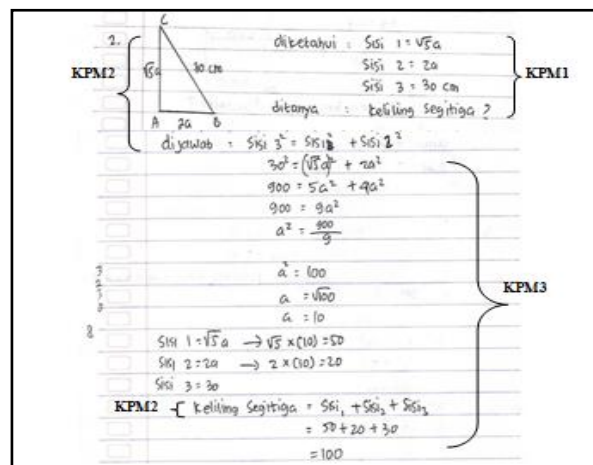 2.
C
√5a
30 cm
A
2a
B
KPM2
diketahui : Sisi 1 = √5a
Sisi 2 = 2a
Sisi 3 = 30 cm
ditanya : keliling segitiga ?
KPM1
dijawab = Sisi 3² = Sisi 1² + Sisi 2²
30² = (√5a)² + 2a²
900 = 5a² + 4a²
900 = 9a²
a² = 900/9
a² = 100
a = √100
a = 10
KPM3
Sisi 1 = √5a → √5 × (10) = 50
Sisi 2 = 2a → 2 × (10) = 20
Sisi 3 = 30
KPM2
keliling segitiga = Sisi₁ + Sisi₂ + Sisi₃
= 50 + 20 + 30
= 100